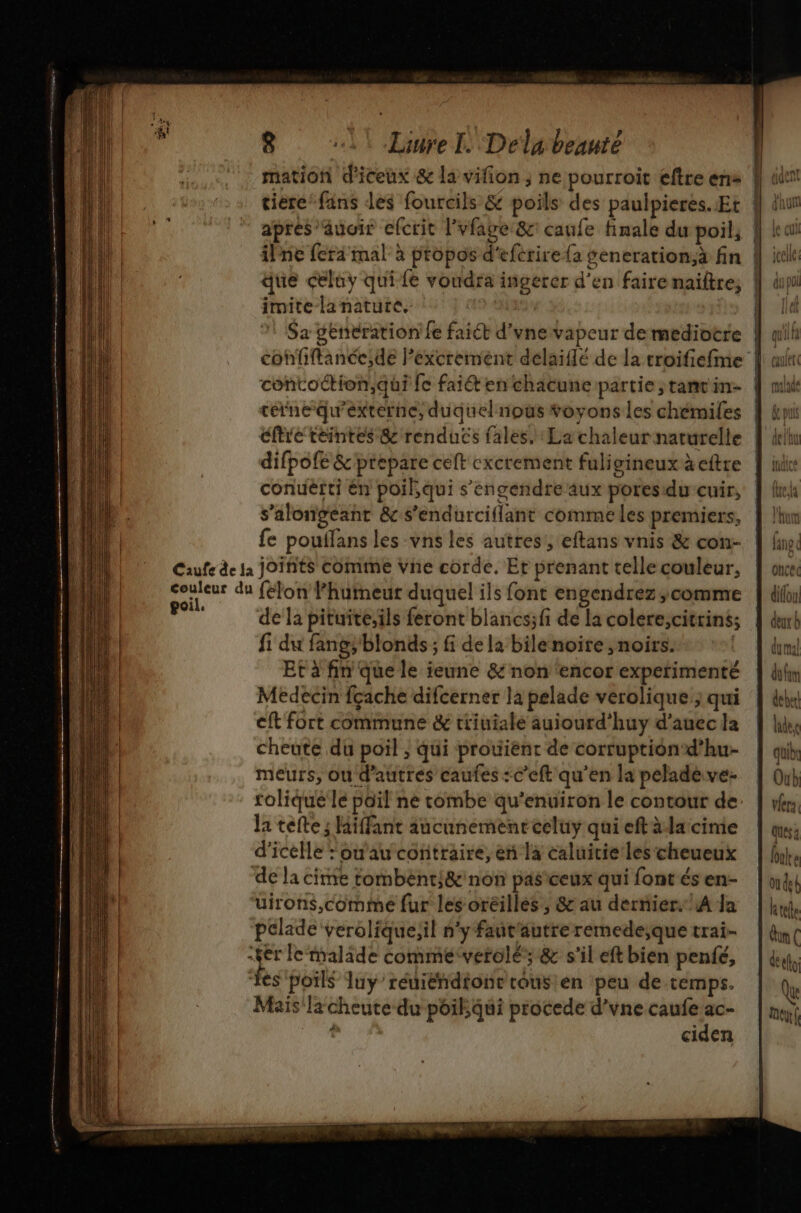 8 Liure I. De la beauté
mation d'iceux & la vision, ne pourroit estre en-
tiere sans les sourcils & poils des paulpieres. Et
apres auoir escrit l'vsage & cause finale du poil,
il ne sera mal à propos d'escrire sa generation, à fin
que celuy qui se voudra ingerer d'en faire naistre,
imite la nature.
Sa generation se faict d'vne vapeur de mediocre
consistance, de l'excrement delaissé de la troisiesme
concoction, qui se faict en chacune partie, tant in-
terne qu'externe, duquel nous voyons les chemises
estre teintes & renduës sales. La chaleur naturelle
dispose & prepare cest excrement fuligineux à estre
conuerti en poil, qui s'engendre aux pores du cuir,
s'alongeant & s'endurcissant comme les premiers,
se poussans les vns les autres, estans vnis & con-
Cause de la joints comme vne corde. Et prenant telle couleur,
couleur du selon l'humeur duquel ils sont engendrez, comme
poil. de la pituite, ils seront blancs; si de la colere, citrins;
si du sang, blonds; si de la bile noire, noirs.
Et à fin que le ieune & non encor experimenté
Medecin sçache discerner la pelade verolique, qui
est fort commune & triuiale auiourd'huy d'auec la
cheute du poil, qui prouient de corruption d'hu-
meurs, ou d'autres causes: c'est qu'en la pelade ve-
rolique le poil ne tombe qu'enuiron le contour de
la teste; laissant aucunement celuy qui est à la cime
d'icelle: ou au contraire, en la caluitie les cheueux
de la cime tombent; & non pas ceux qui sont és en-
uirons, comme sur les oreilles, & au dernier. A la
pelade verolique, il n'y faut autre remede, que trai-
ter le malade comme verolé; & s'il est bien pensé,
ses poils luy reuiendront tous en peu de temps.
Mais la cheute du poil, qui procede d'vne cause ac-
ciden